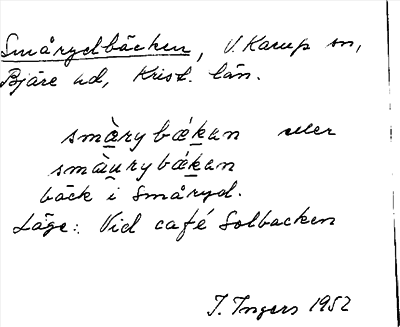 Smårydbäcken, V. Karup sn,
Bjäre hd, Krist. län.
smàrybǽkan eller
smàurybǽkan
bäck i Småryd.
Läge: Vid café Solbacken
I. Ingers 1952